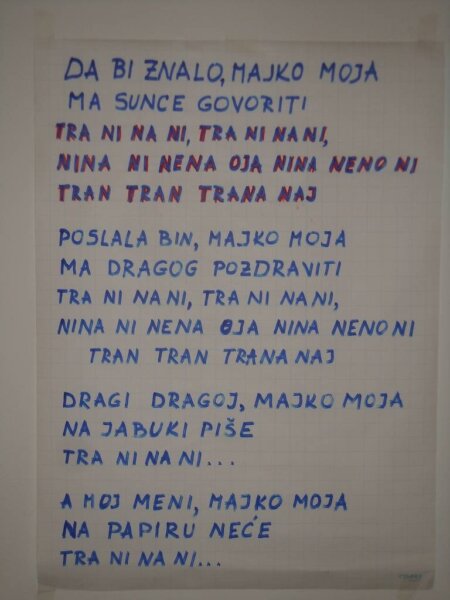 DA BI ZNALO, MAJKO MOJA
MA SUNCE GOVORITI
TRA NI NA NI, TRA NI NANI,
NINA NI NENA OJA NINA NENO NI
TRAN TRAN TRANA NAJ
POSLALA BIN, MAJKO MOJA
MA DRAGOG POZDRAVITI
TRA NI NANI, TRA NI NANI,
NINA NI NENA OJA NINA NENO NI
TRAN TRAN TRANA NAJ
DRAGI DRAGOJ, MAJKO MOJA
NA JABUKI PIŠE
TRA NI NA NI...
A MOJ MENI, MAJKO MOJA
NA PAPIRU NEĆE
TRA NI NA NI...